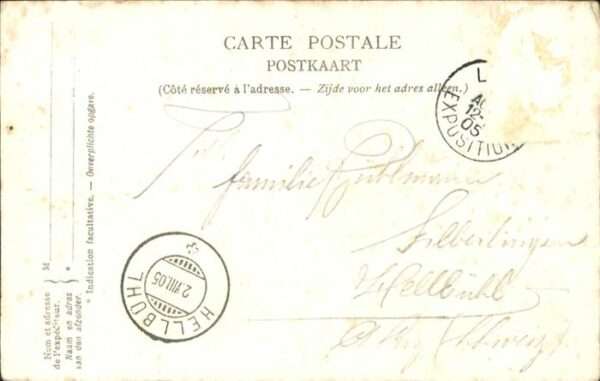 CARTE POSTALE
POSTKAART
(Côté réservé à l'adresse. — Zijde voor het adres alleen.)
L
12
05
EXPOSITION
familie Bühlmann
Hellbühl
HELLBÜHL
2.VIII.05
M
Nom et adresse
de l'expéditeur.
Naam en adres
van den afzender.
* Indication facultative. — Onverplichte opgave.